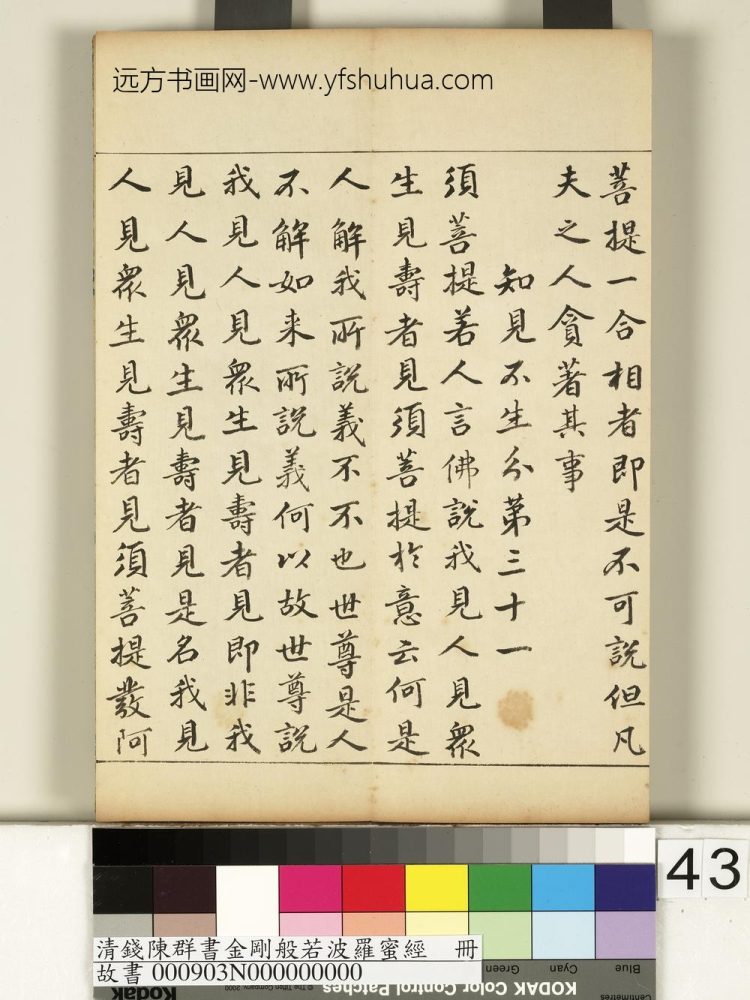 远方书画网-www.yfshuhua.com
菩提一合相者即是不可說但凡
夫之人貪著其事
知見不生分第三十一
須菩提若人言佛說我見人見眾
生見壽者見須菩提於意云何是
人解我所說義不不也世尊是人
不解如来所說義何以故世尊說
我見人見眾生見壽者見即非我
見人見眾生見壽者見是名我見
人見眾生見壽者見須菩提發阿
43
清錢陳群書金剛般若波羅蜜經 冊
故書 000903N000000000
Blue
Cyan
Green
KODAK Color Control Patches
Kodak
© The Tiffen Company, 2000
Centimetres